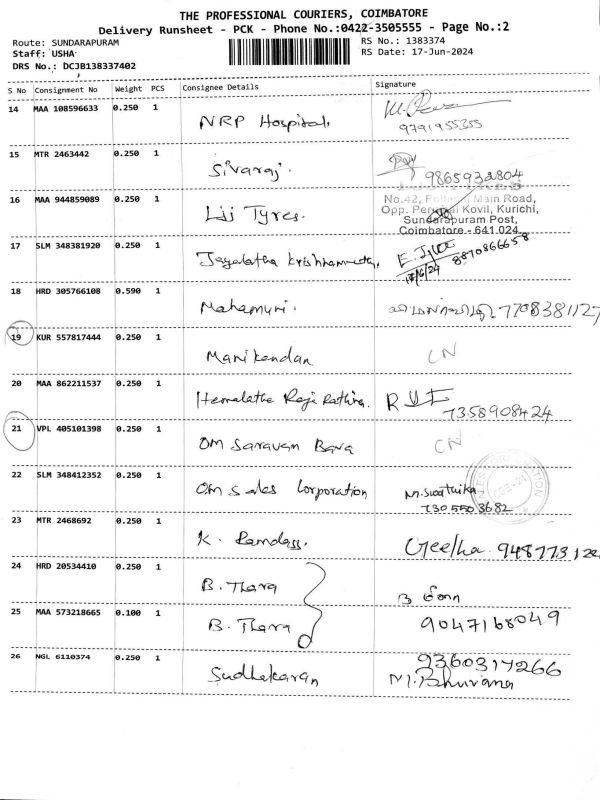 THE PROFESSIONAL COURIERS, COIMBATORE
Delivery Runsheet - PCK - Phone No.:0422-3505555 - Page No.:2
Route: SUNDARAPURAM
RS No.: 1383374
Staff: USHA
RS Date: 17-Jun-2024
DRS No.: DCJB138337402
S No Consignment No Weight PCS Consignee Details Signature
14 MAA 108596633 0.250 1 NRP Hospital.
9791955355
15 MTR 2463442 0.250 1 Sivaraj. 9865932804
16 MAA 944859089 0.250 1 Lii Tyres.
No.42, Main Road,
Opp. Kovil, Kurichi,
Sundarapuram Post,
Coimbatore - 641 024
17 SLM 348381920 0.250 1 8870866658
17/6/24
18 HRD 305766108 0.590 1 Mahamuni. 7708381127
19 KUR 557817444 0.250 1 Manikandan CN
20 MAA 862211537 0.250 1 Hemalatha Raja Rathina.
7358908424
21 VPL 405101398 0.250 1 OM Saravan Bava CN
22 SLM 348412352 0.250 1 OM Sales Corporation M. Swathika
730 550 3682
23 MTR 2468692 0.250 1 K. Ramdass. Geetha
24 HRD 20534410 0.250 1 B. Thara
25 MAA 573218665 0.100 1 B. Thara 9047168049
26 NGL 6110374 0.250 1 Sudhakaran 9360317266
M. Bhuvana